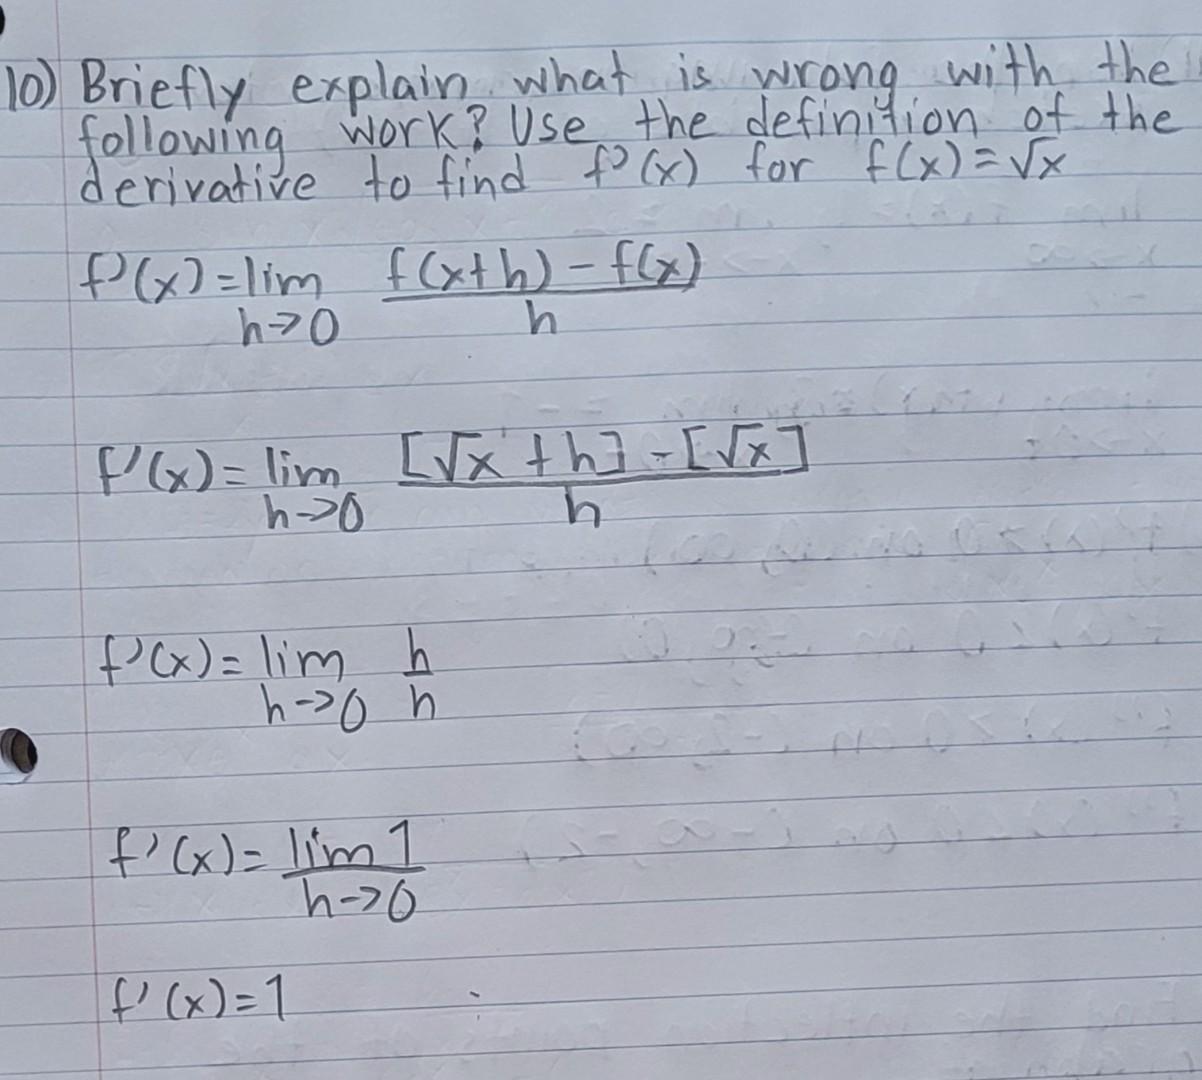 10) Briefly explain what is wrong with the
following work? Use the definition of the
derivative to find f'(x) for f(x)=√x
f'(x)=lim f(x+h)-f(x)
h→0 h
f'(x)=lim [√x+h]-[√x]
h→0 h
f'(x)=lim h
h→0 h
f'(x)=lim 1
h→0
f'(x)=1